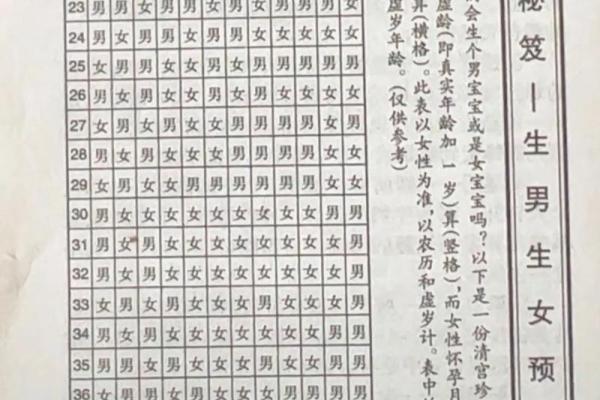 秘笈—生男生女预
会生个男宝宝或是女宝宝吗？以下是一份清宫珍
虚龄(即真实年龄加一岁)算(竖格)，而女性怀孕月
算(横格)。此表以女性为准，以农历和虚岁计。表中
虚岁年龄。(仅供参考)
23 男 男 女 男 男 女 男 女 男 男 男 女
24 男 女 男 男 女 男 男 女 女 女 女 女
25 女 男 男 女 女 男 女 男 男 男 男 男
26 男 女 男 女 女 男 女 男 女 女 女 女
27 女 男 女 男 女 女 男 男 男 男 女 男
28 男 女 男 女 女 女 男 男 男 男 女 女
29 女 男 女 女 男 男 男 男 男 女 女 女
30 男 女 女 女 女 女 女 女 女 女 男 男
31 男 女 男 女 女 女 女 女 女 女 女 男
32 男 女 男 女 女 女 女 女 女 女 女 男
33 女 男 女 男 女 女 女 男 女 女 女 男
34 男 女 男 女 女 女 女 女 女 女 男 男
35 男 男 女 男 女 女 女 男 女 女 男 男
36 女 男 男 女 男 女 女 女 男 男 男 男